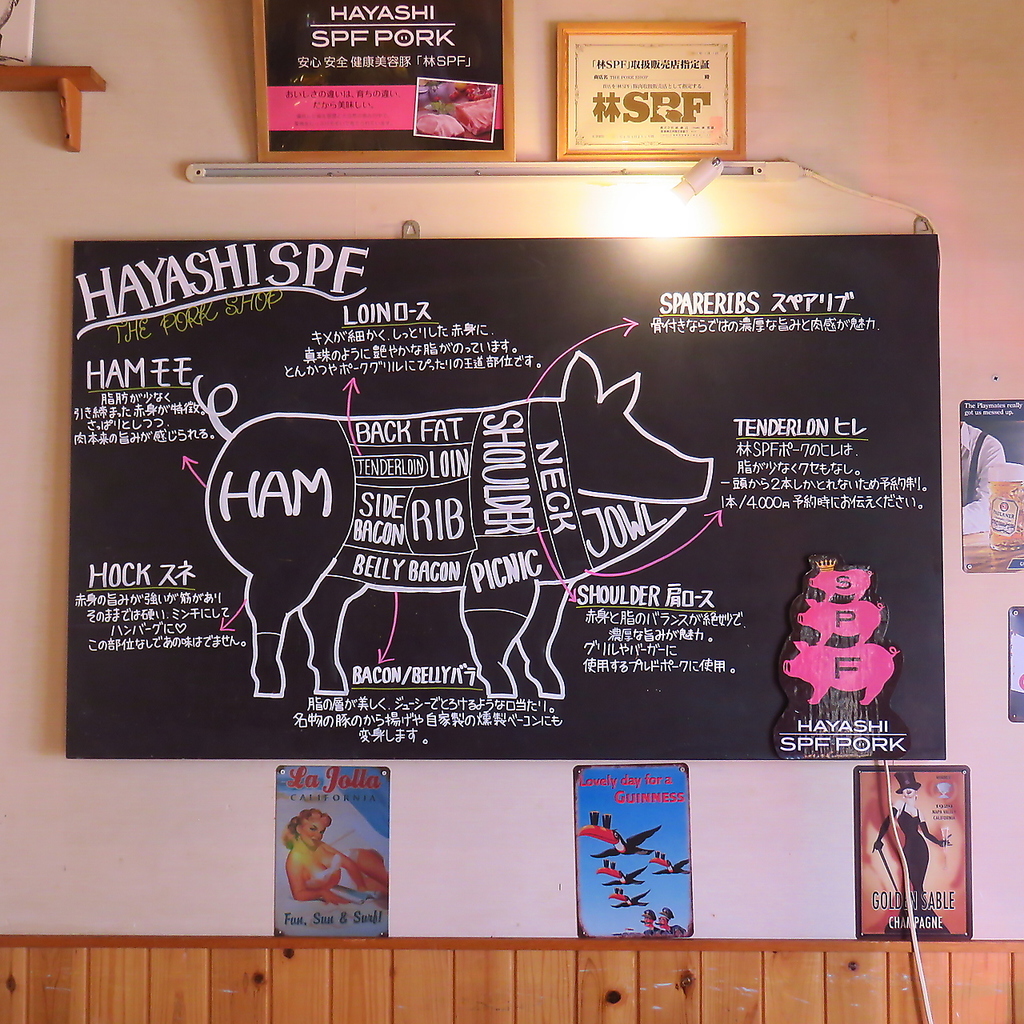 HAYASHI
SPF PORK
安心 安全 健康美容豚「林SPF」
おいしさの違いは、育ちの違い。
だから美味しい。
「林SPF」取扱販売店指定証
THE PORK SHOP
林SPF
HAYASHI SPF
THE PORK SHOP
LOIN ロース
キメが細かく、しっとりした赤身に、
真珠のように艶やかな脂がのっています。
とんかつやポークグリルにぴったりの王道部位です。
SPARERIBS スペアリブ
骨付きならではの濃厚な旨みと肉感が魅力.
HAM モモ
脂肪が少なく
引き締まった赤身が特徴。
さっぱりとしつつ
肉本来の旨みが感じられる。
TENDERLON ヒレ
林SPFポークのヒレは、
脂が少なくクセもなし。
一頭から2本しかとれないため予約制。
1本/4.000円 予約時にお伝えください。
HAM
BACK FAT
TENDERLOIN
LOIN
SIDE
BACON
RIB
BELLY BACON
SHOULDER
NECK
JOWL
PICNIC
HOCK スネ
赤身の旨みが強いが筋があり
そのままでは硬い。ミンチにして
ハンバーグに♡
この部位なしであの味はでません。
SHOULDER 肩ロース
赤身と脂のバランスが絶妙で、
濃厚な旨みが魅力。
グリルやバーガーに
使用するプルドポークに使用。
BACON/BELLY バラ
脂の層が美しく、ジューシーでとろけるような口当たり。
名物の豚のから揚げや自家製の燻製ベーコンにも
変身します。
S
P
F
HAYASHI
SPF PORK
The Playmates really
got us messed up.
La Jolla
CALIFORNIA
Fun, Sun & Surf!
Lovely day for a
GUINNESS
NAPA VALLEY
CALIFORNIA
GOLDEN SABLE
CHAMPAGNE